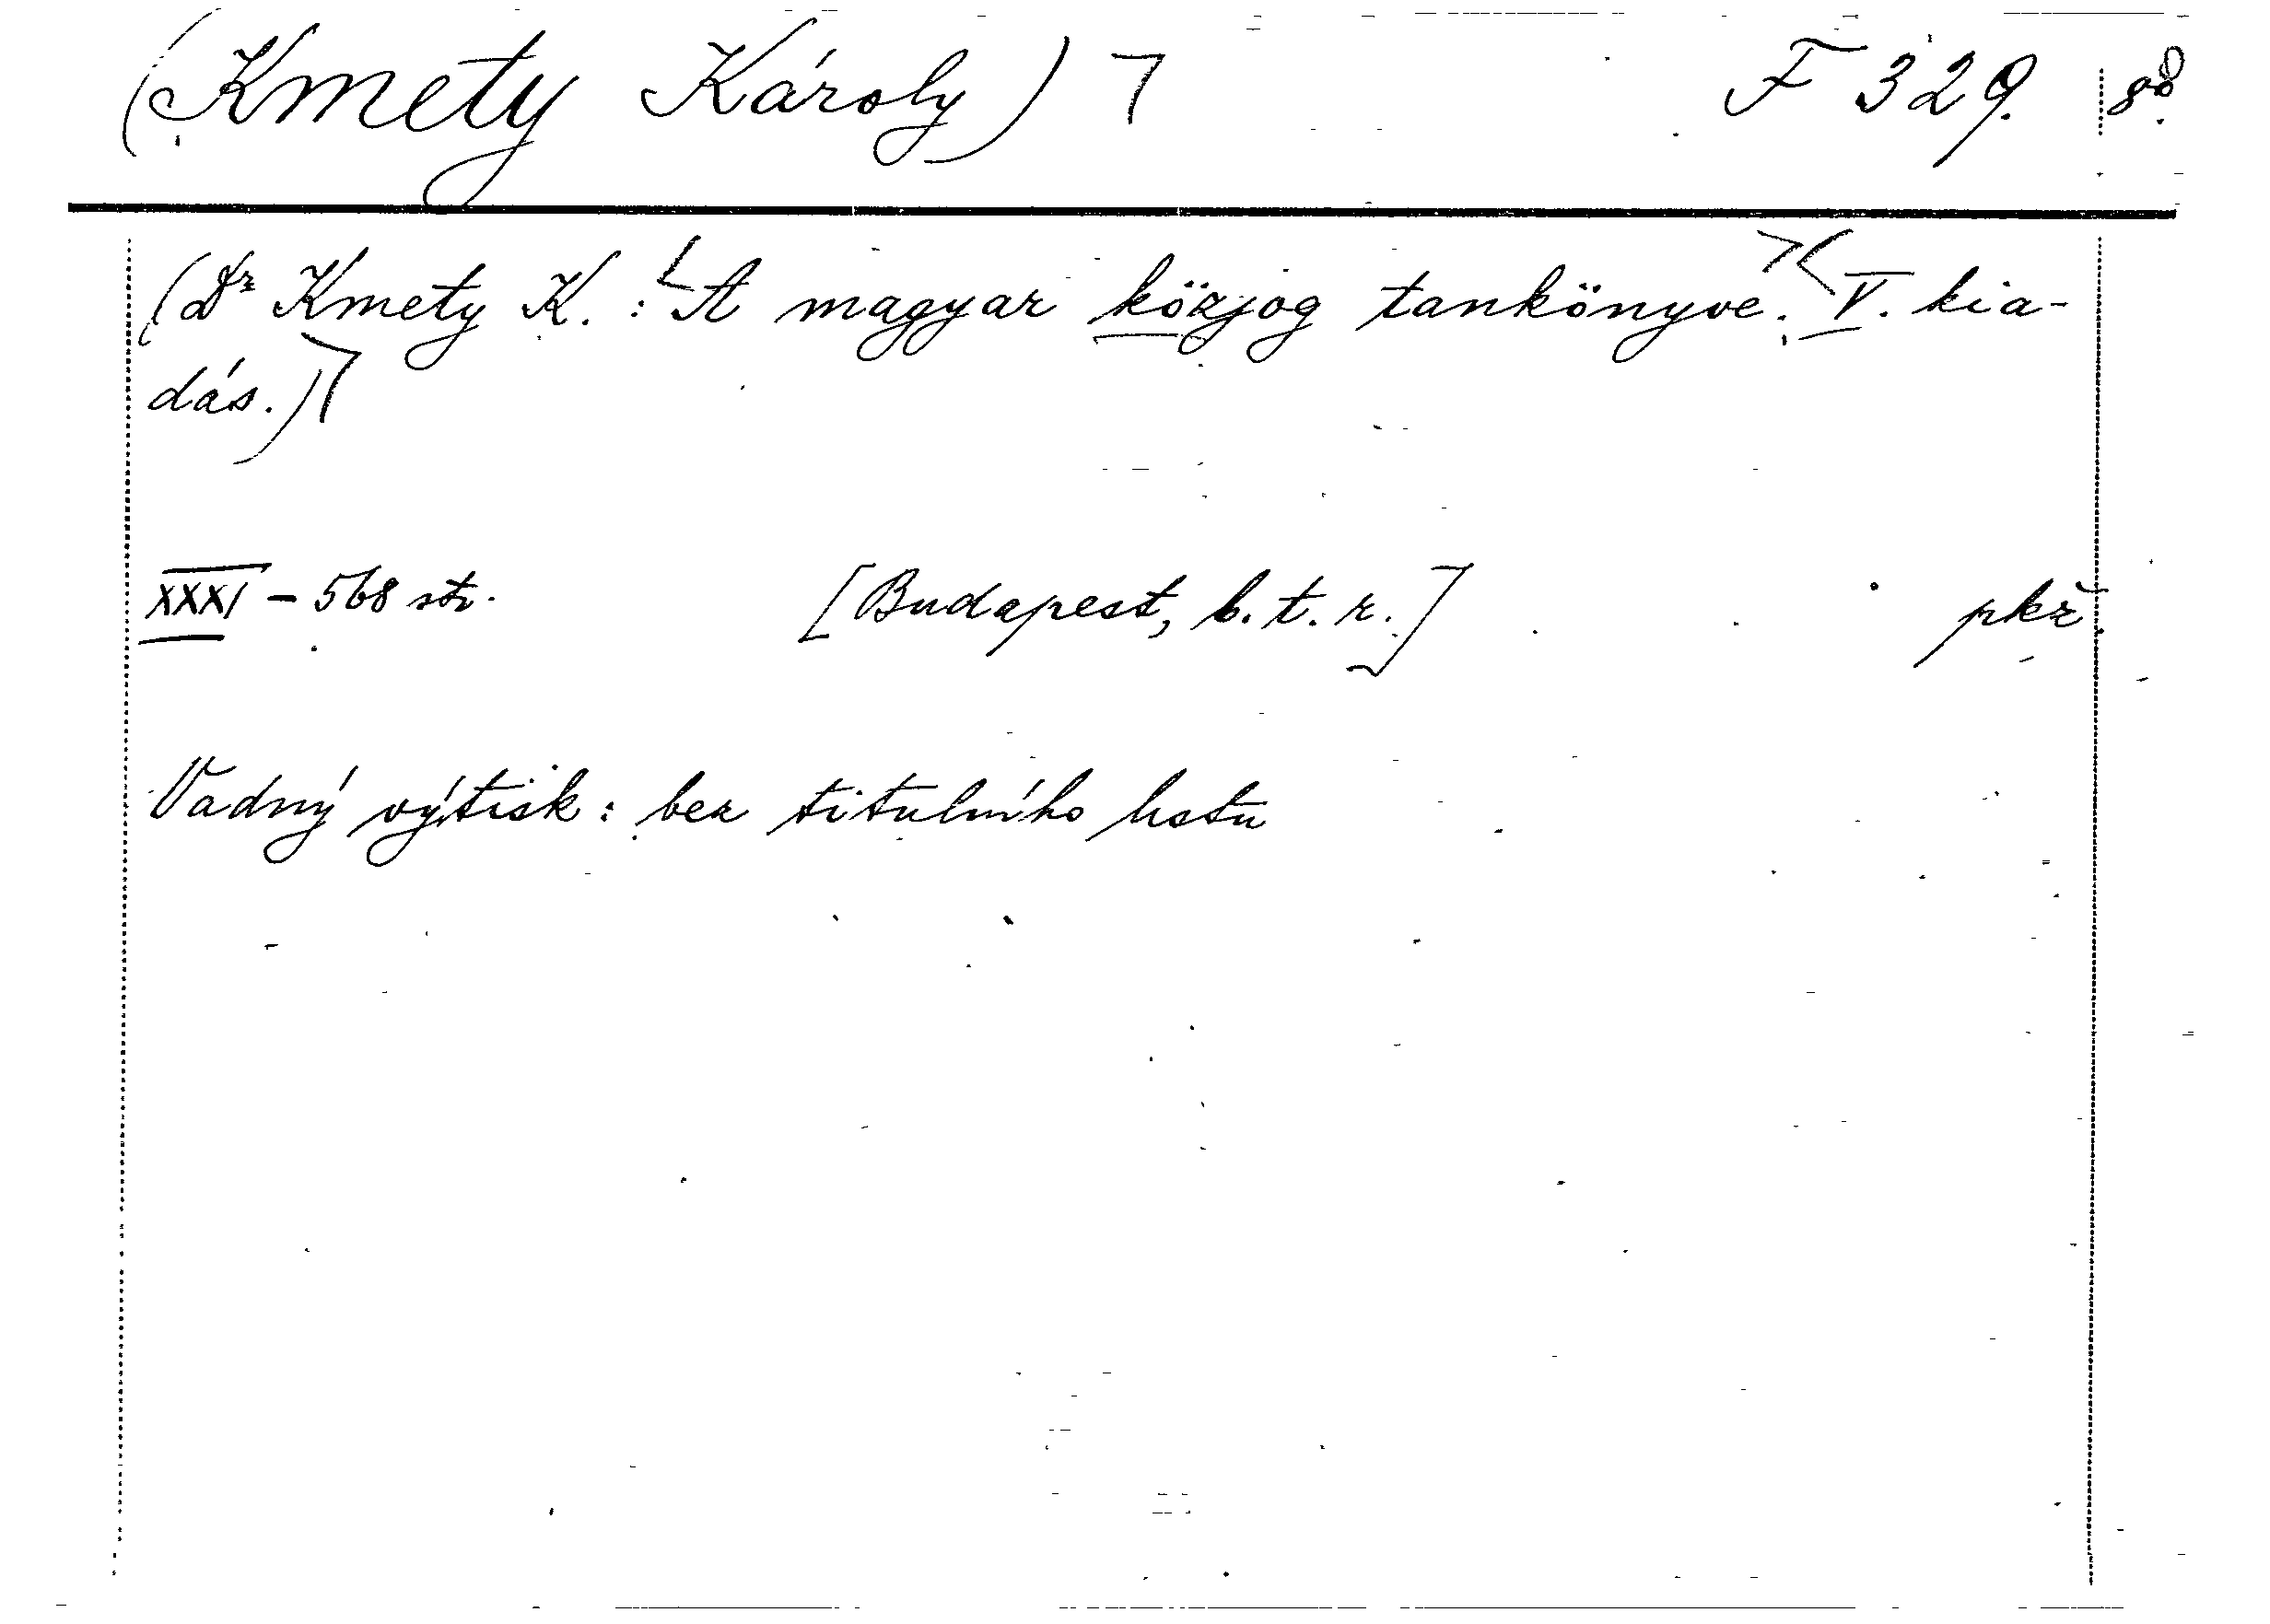 (Kmety Károly) F 329. 8°.
(Dr Kmety K. : A magyar közjog tankönyve. V. kia-
dás.)
XXXI – 568 str. [Budapest, b. t. r.] pkž.
Vadný výtisk : bez titulního listu